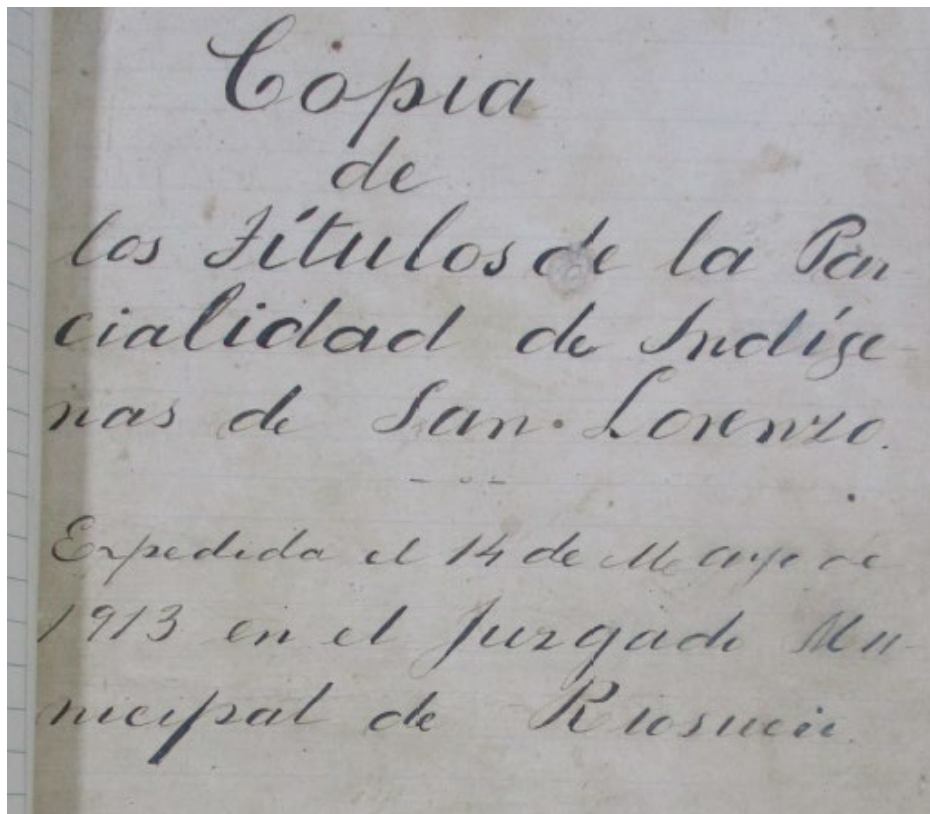 Copia
de
los Títulos de la Par
cialidad de Indíge-
nas de San Lorenzo.
Expedida el 14 de Mayo de
1913 en el Juzgado Mu-
nicipal de Riosucio.